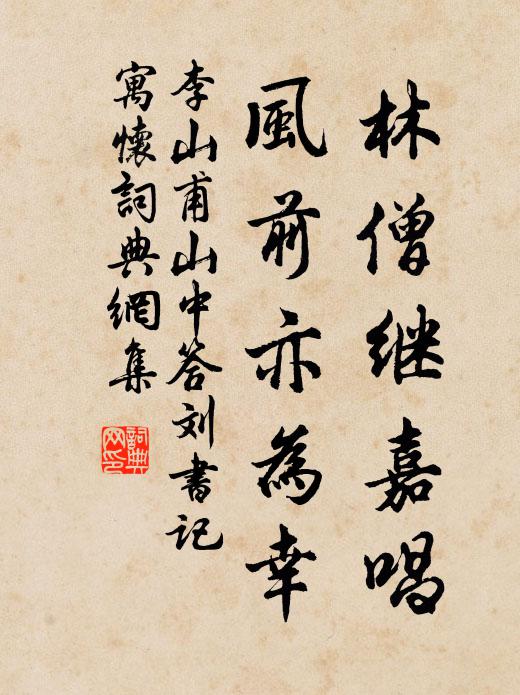 林僧继嘉唱
風前亦為幸
李山甫山中答刘書记
寓懷詞典網集
詞典
网印